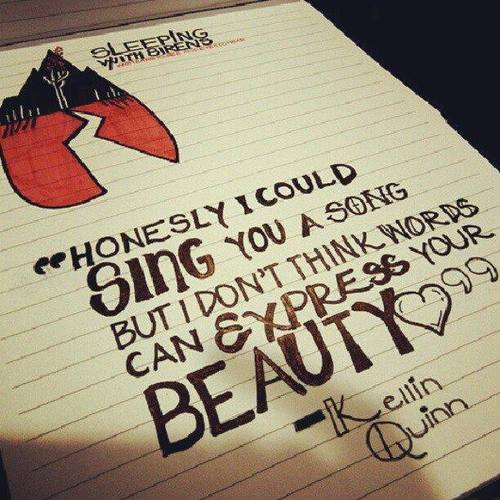 SLEEPING
WITH SIRENS
"HONESLY I COULD
SING YOU A SONG
BUT I DON'T THINK WORDS
CAN EXPRESS YOUR
BEAUTY"
-Kellin
Quinn